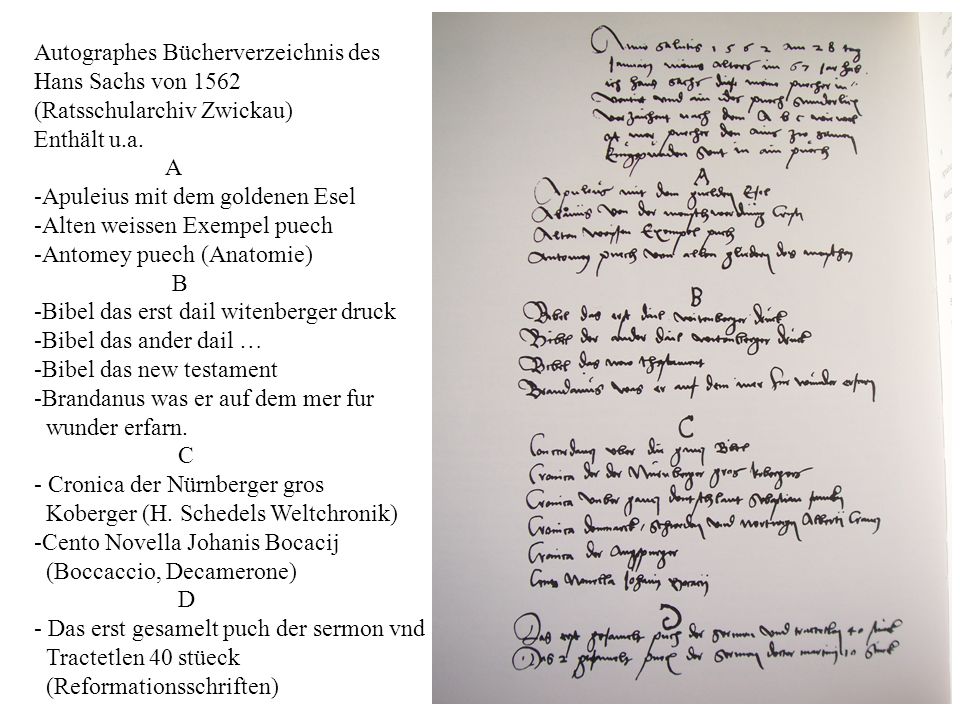 Autographes Bücherverzeichnis des
Hans Sachs von 1562
(Ratsschularchiv Zwickau)
Enthält u.a.
A
-Apuleius mit dem goldenen Esel
-Alten weissen Exempel puech
-Antomey puech (Anatomie)
B
-Bibel das erst dail witenberger druck
-Bibel das ander dail …
-Bibel das new testament
-Brandanus was er auf dem mer fur
wunder erfarn.
C
- Cronica der Nürnberger gros
Koberger (H. Schedels Weltchronik)
-Cento Novella Johanis Bocacij
(Boccaccio, Decamerone)
D
- Das erst gesamelt puch der sermon vnd
Tractetlen 40 stüeck
(Reformationsschriften)
Anno salutis 1562 am 28 tag
Januarii meines alters im 67 jar hab
ich hans sachs diese meine puecher
und ein ides puech sunderlich
verzaichent nach dem A b c wie wol
oft mer puecher den ains zw samen
sent in ain puech
A
Apuleius mit dem gulden Esel
von der
Alten weysen Exempel puch
Antomey puech von allen glidern des menschen
B
Bibel das erst dail witenberger druck
Bibel der ander dail witenberger druck
Bibel das new thestament
Brandanus was er auf dem mer fur wunder erfarn
C
Concordanz uber die ganz Bibel
Cronica der der Nürnberger gros kobergers
Cronica uber ganz deutschlant Sebastian franken
Cronica denmarck, schweden und norwegen Alberti Cranz
Cronica der Augspurger
Cento Novella Johanis Bocacij
D
Das erst gesamelt puch der sermon und tractetlen 40 stueck
Das 2 gesamelt puech der sermon doctor martini 10 stuck